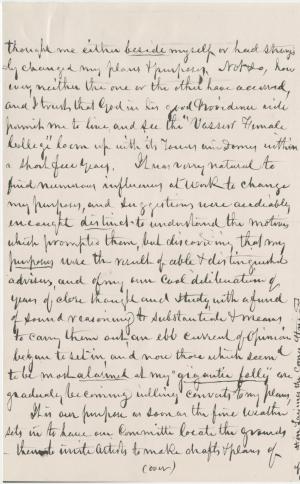 thought me either beside myself or had strange
ly changed my plans & purposes. Not so, how
ever neither the one or the other have occurred,
and I trust that God in his good Providence will
permit me to live and see the "Vassar Female
College" loom up with its Towers and Domes within
a short few years. It was very natural to
find numerous influences at work to change
my purpose, and suggestions were accidently
enough distinct to understand the motives
which prompted them, but discovering that my
purposes were the result of able & distinguished
advisers, and of my own cool deliberation of
years of close thought and study with a fund
of sound reasoning to substantiate & means
to carry them out, an ebb current of Opinion
began to set in and now those which seem'd
to be most alarmed at my "gigantic folly" are
gradually becoming willing converts to my plans
It is our purpose as soon as the fine weather
sets in to have our Committe locate the grounds
- then to invite Artists to make drafts & plans of
(over)